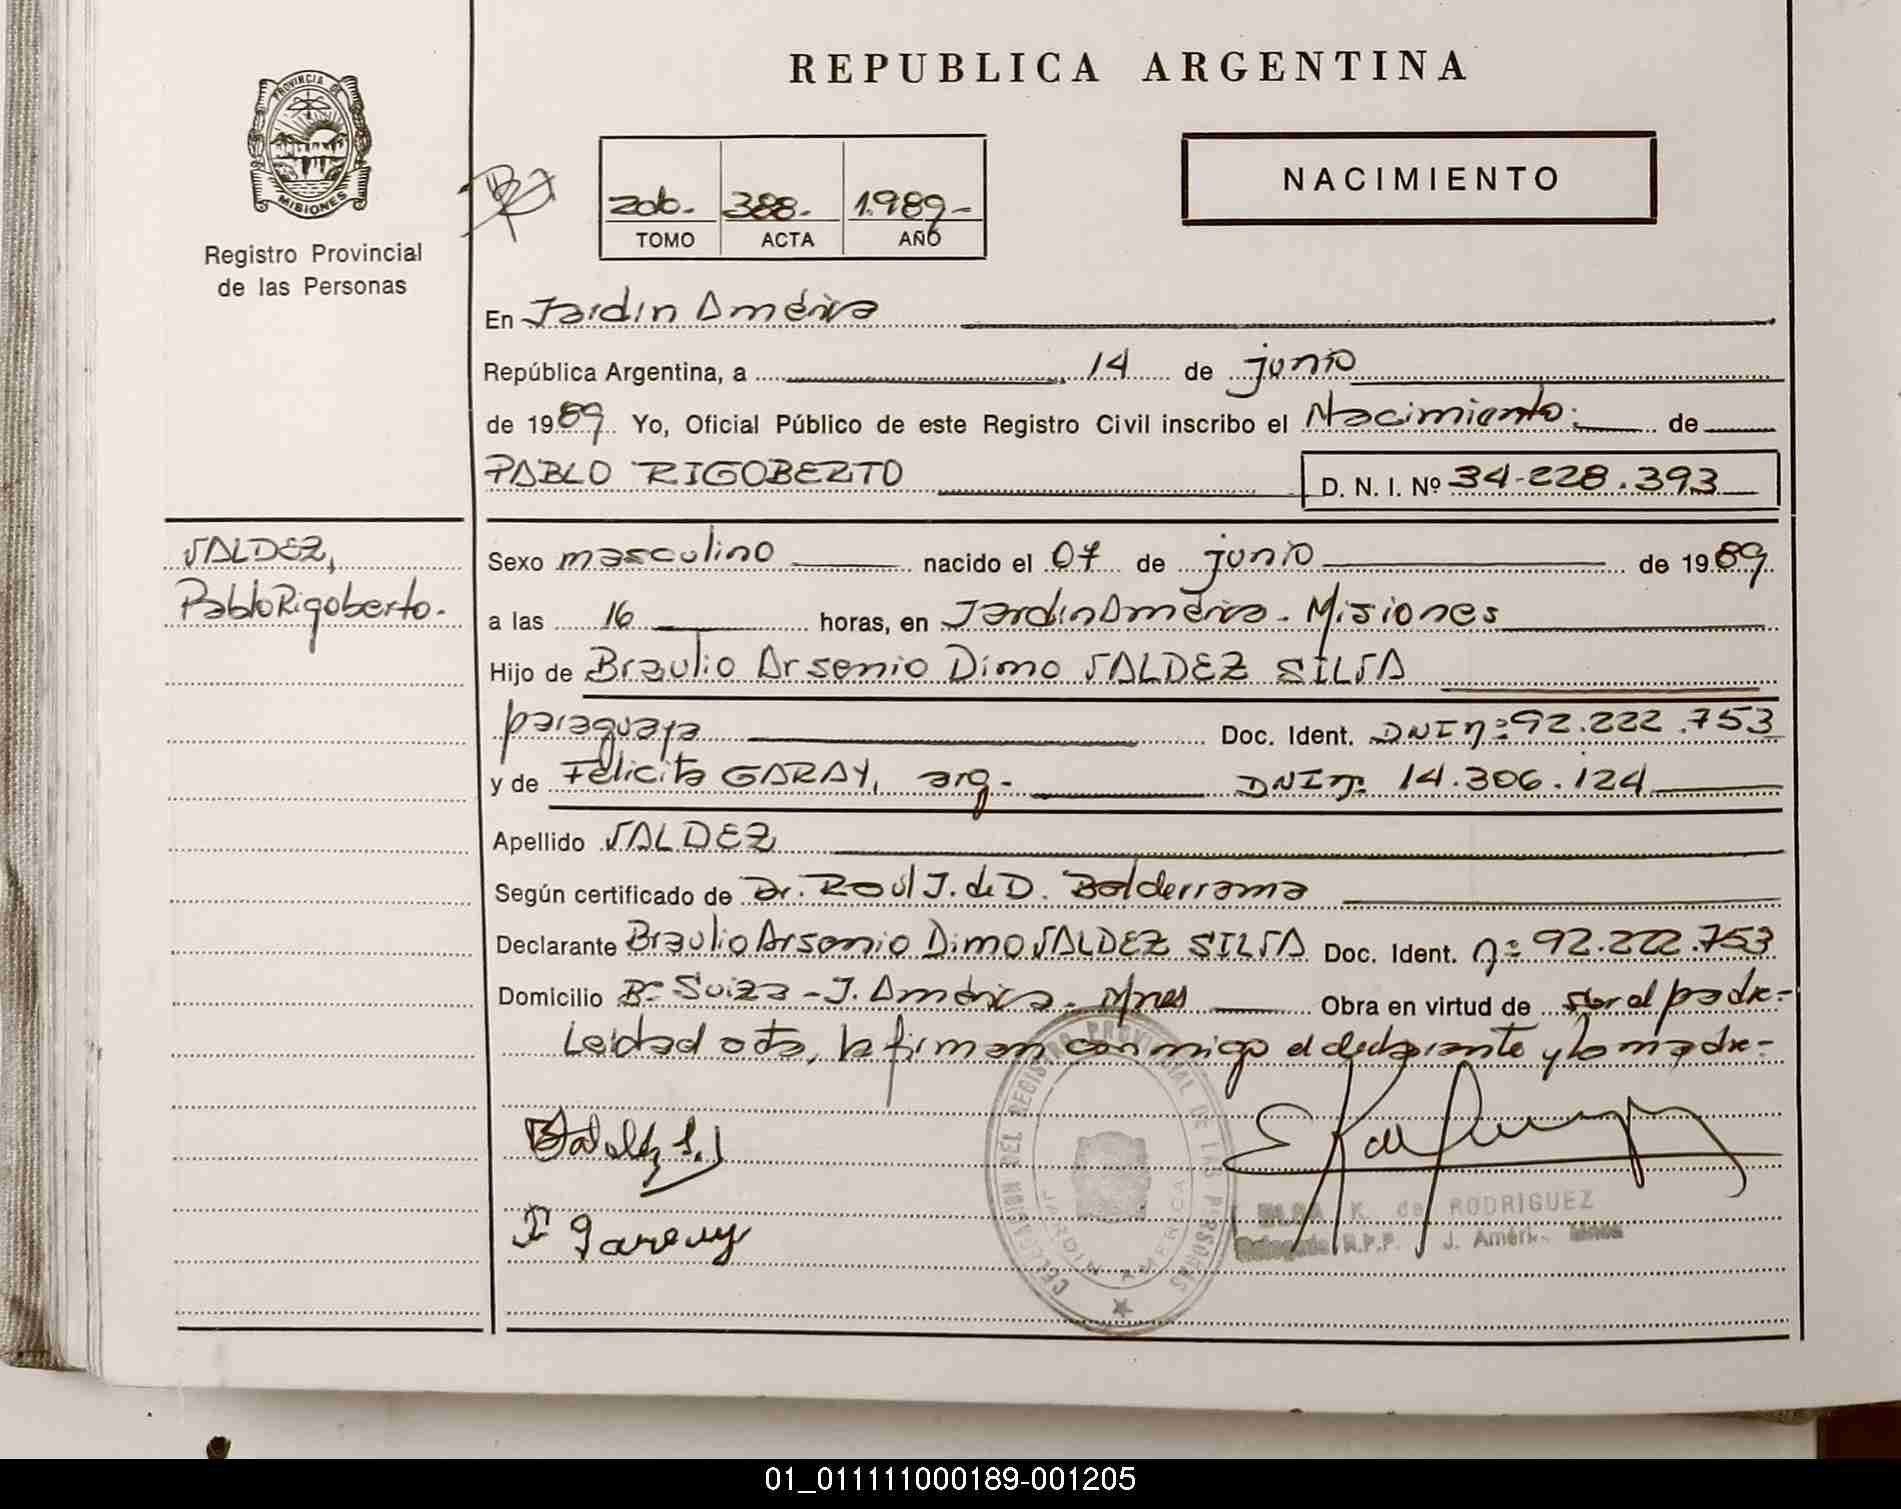 REPUBLICA ARGENTINA
PROVINCIA DE
MISIONES
Registro Provincial
de las Personas
2do.- 388.- 1.989.-
TOMO ACTA AÑO
NACIMIENTO
En Jardín América
República Argentina, a 14 de junio
de 1989 Yo, Oficial Público de este Registro Civil inscribo el Nacimiento: de
PABLO RIGOBERTO D. N. I. Nº 34-228.393
VALDEZ,
Pablo Rigoberto.-
Sexo masculino nacido el 07 de junio de 1989
a las 16 horas, en Jardín América - Misiones
Hijo de Braulio Arsenio Dimo VALDEZ SILVA
paraguaya Doc. Ident. DNI nº 92.222.753
y de Felicita GARAY, arg.- DNI nº 14.306.124
Apellido VALDEZ
Según certificado de Dr. Raúl J. de D. Balderrama
Declarante Braulio Arsenio Dimo VALDEZ SILVA Doc. Ident. nº 92.222.753
Domicilio Bº Suiza - J. América - Mnes Obra en virtud de ser el padre.-
Leída el acta, la firman conmigo el declarante y la madre.-
DELEGACION DEL REGISTRO PROVINCIAL DE LAS PERSONAS
JARDIN AMERICA
B Valdez S.
F Garay
ELSA K. de RODRIGUEZ
Delegada R.P.P. J. América Mnes
01_011111000189-001205